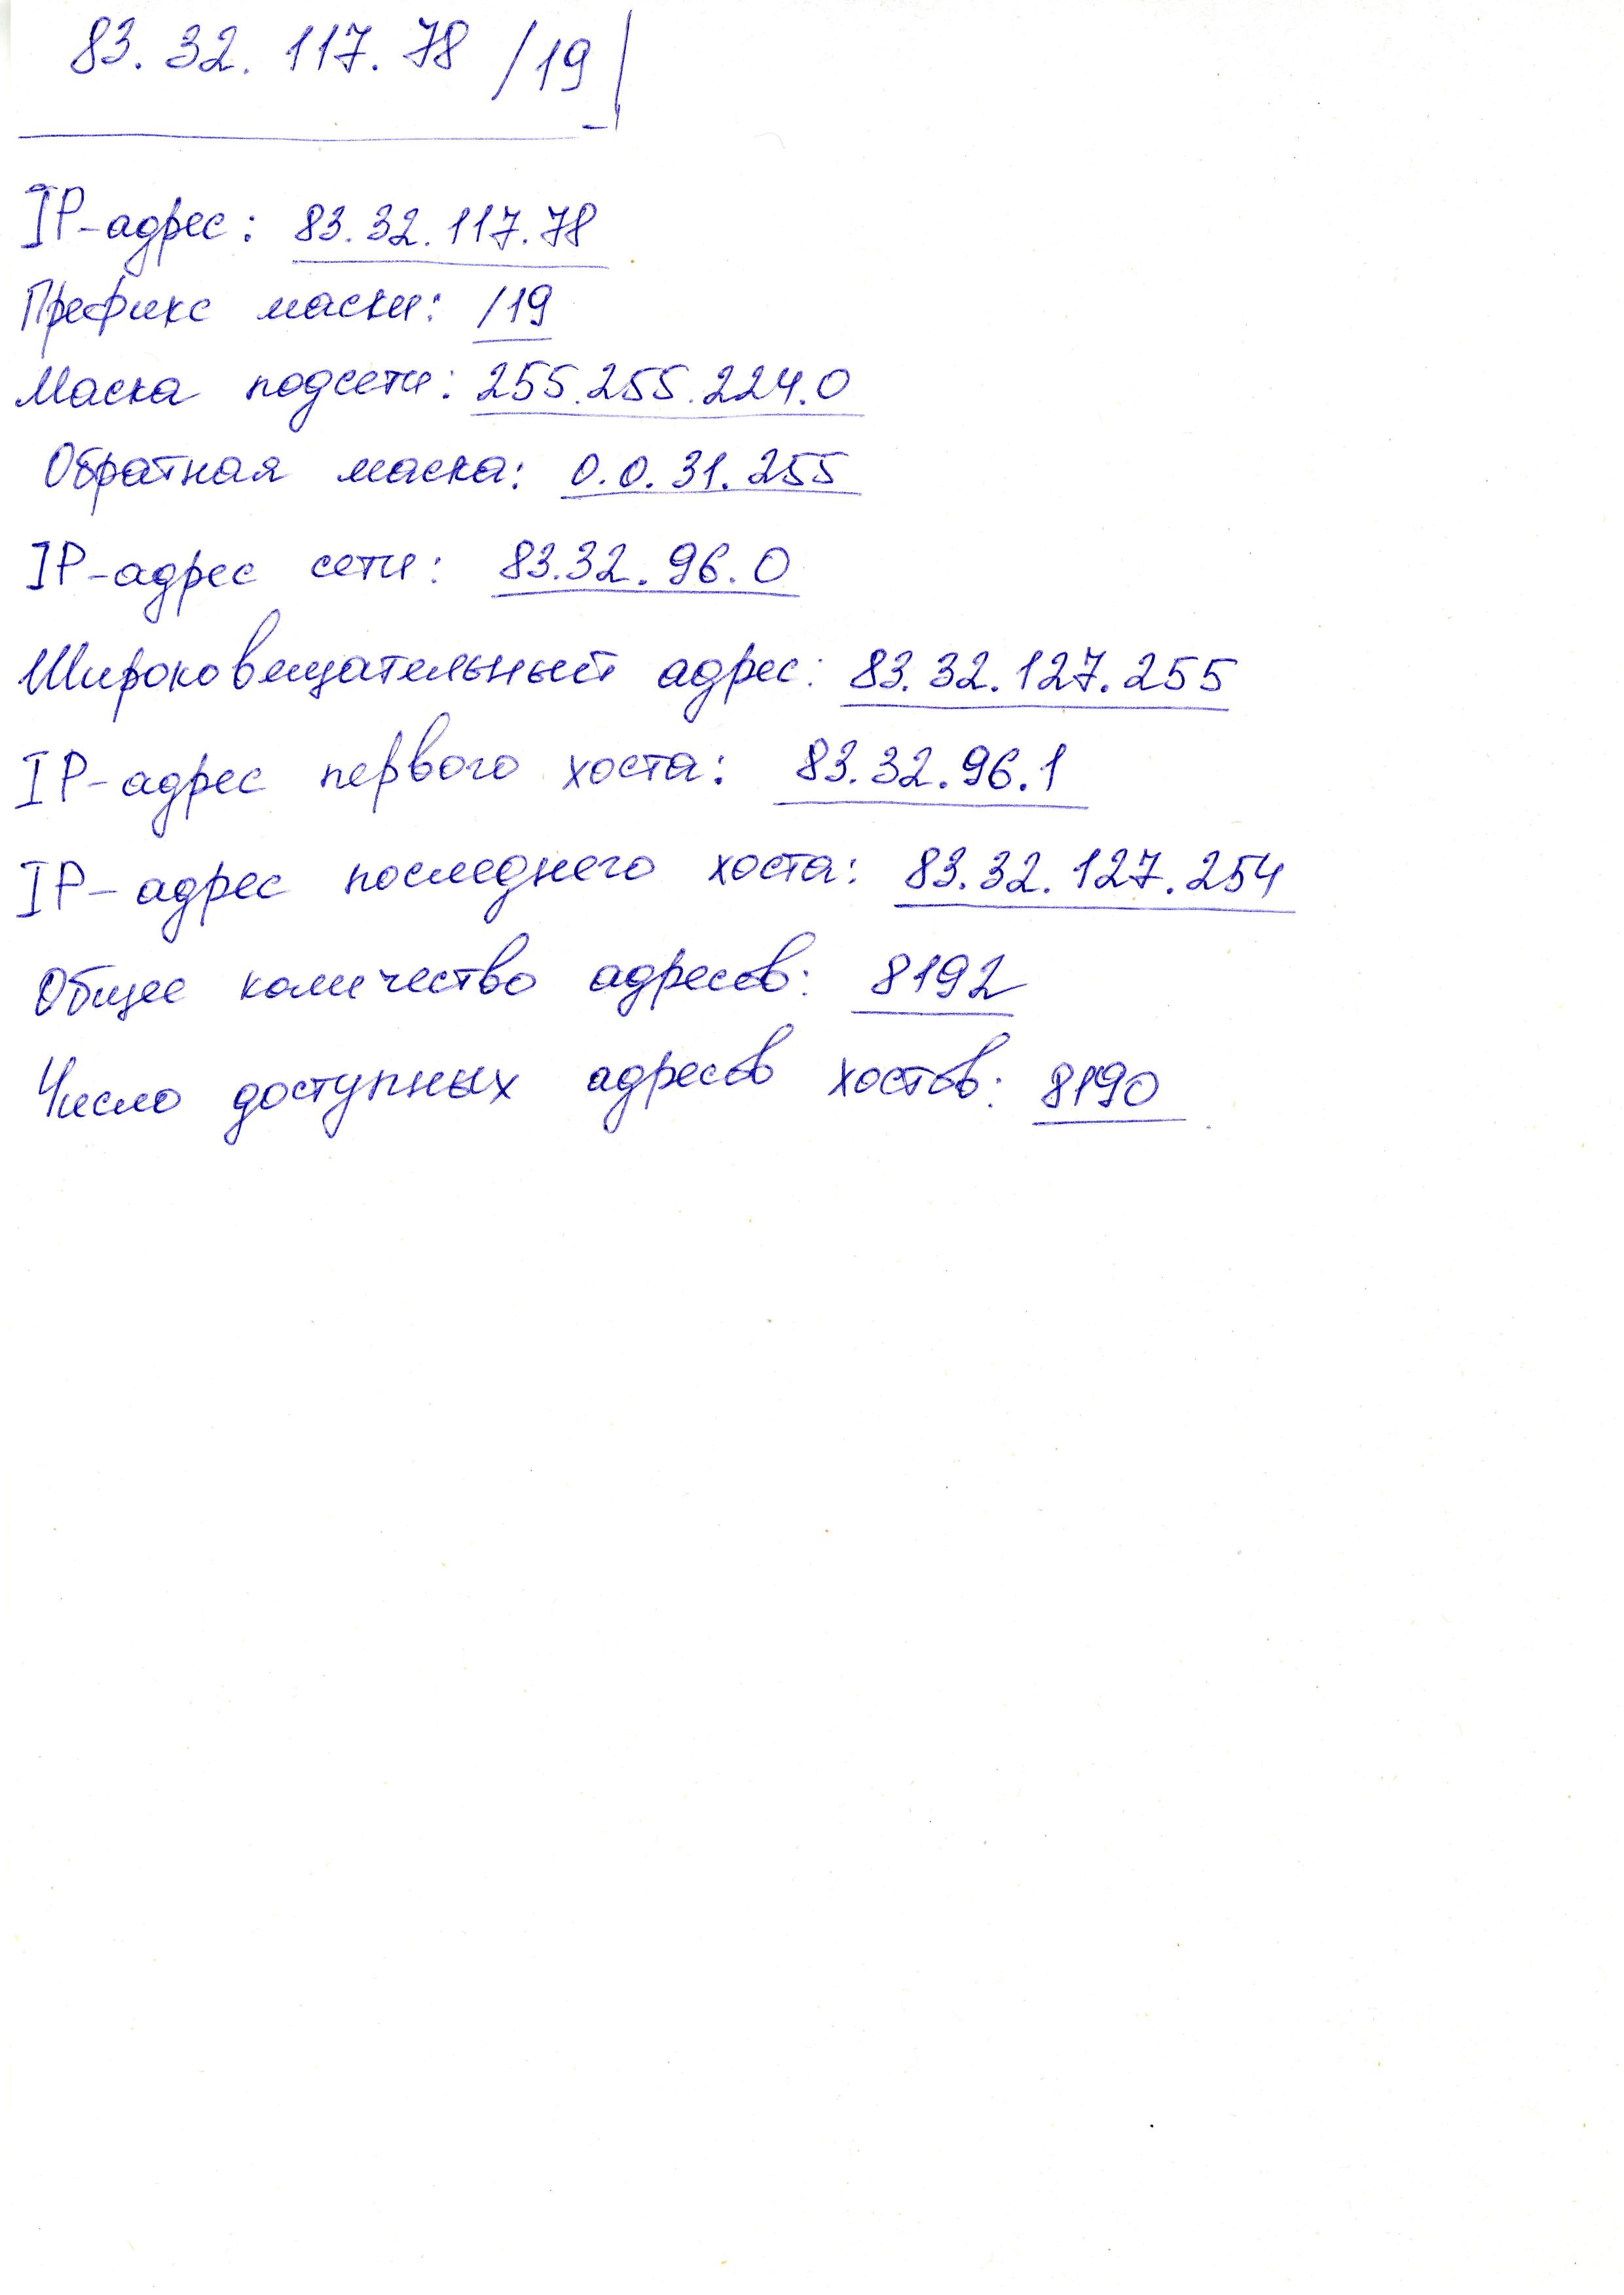 83.32.117.78 /19
IP-адрес: 83.32.117.78
Префикс маски: /19
Маска подсети: 255.255.224.0
Обратная маска: 0.0.31.255
IP-адрес сети: 83.32.96.0
Широковещательный адрес: 83.32.127.255
IP-адрес первого хоста: 83.32.96.1
IP-адрес последнего хоста: 83.32.127.254
Общее количество адресов: 8192
Число доступных адресов хостов: 8190